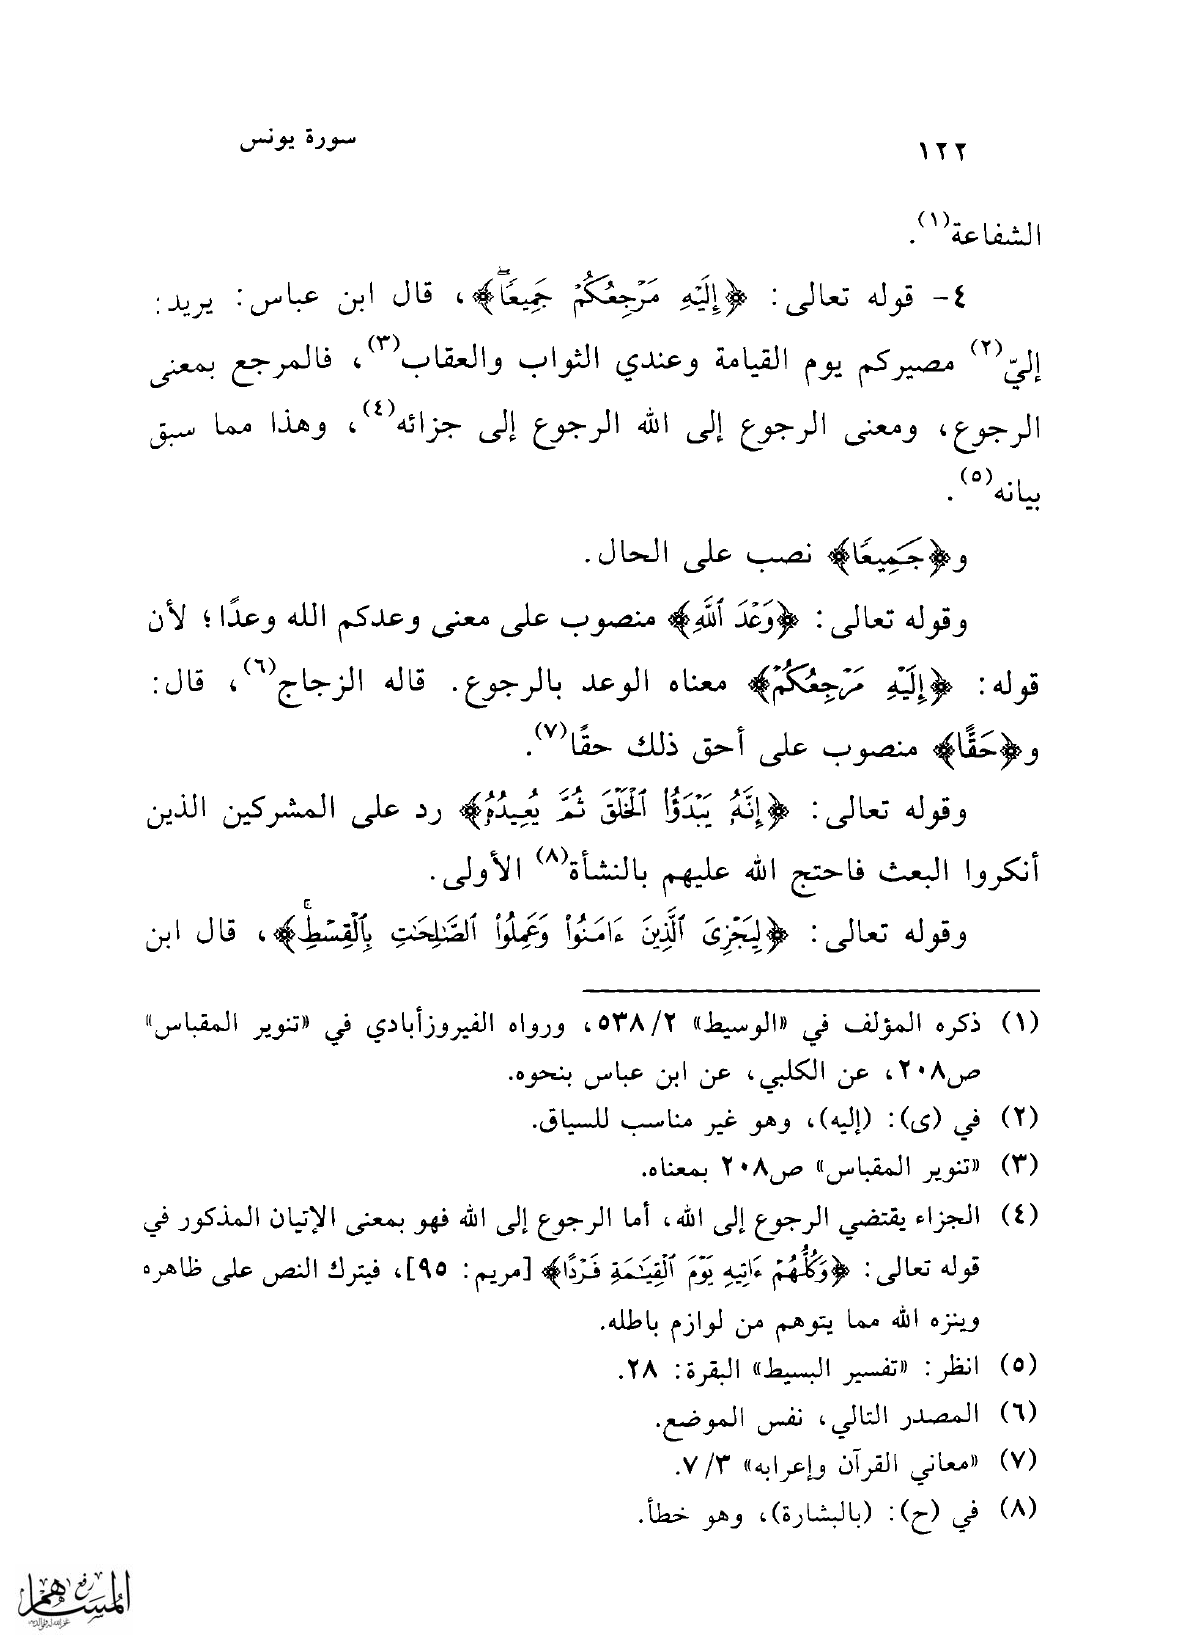 ١٢٢ سورة يونس
الشفاعة(١).
٤- قوله تعالى: ﴿إِلَيْهِ مَرْجِعُكُمْ جَمِيعًاۖ﴾، قال ابن عباس: يريد:
إليّ(٢) مصيركم يوم القيامة وعندي الثواب والعقاب(٣)، فالمرجع بمعنى
الرجوع، ومعنى الرجوع إلى الله الرجوع إلى جزائه(٤)، وهذا مما سبق
بيانه(٥).
و﴿جَمِيعًا﴾ نصب على الحال.
وقوله تعالى: ﴿وَعْدَ ٱللَّهِ﴾ منصوب على معنى وعدكم الله وعدًا؛ لأن
قوله: ﴿إِلَيْهِ مَرْجِعُكُمْ﴾ معناه الوعد بالرجوع. قاله الزجاج(٦)، قال:
و﴿حَقًّا﴾ منصوب على أحق ذلك حقًا(٧).
وقوله تعالى: ﴿إِنَّهُۥ يَبْدَؤُا۟ ٱلْخَلْقَ ثُمَّ يُعِيدُهُۥ﴾ رد على المشركين الذين
أنكروا البعث فاحتج الله عليهم بالنشأة(٨) الأولى.
وقوله تعالى: ﴿لِيَجْزِىَ ٱلَّذِينَ ءَامَنُوا۟ وَعَمِلُوا۟ ٱلصَّـٰلِحَـٰتِ بِٱلْقِسْطِۚ﴾، قال ابن
(١) ذكره المؤلف في «الوسيط» ٢/ ٥٣٨، ورواه الفيروزأبادي في «تنوير المقباس»
ص٢٠٨، عن الكلبي، عن ابن عباس بنحوه.
(٢) في (ى): (إليه)، وهو غير مناسب للسياق.
(٣) «تنوير المقباس» ص٢٠٨ بمعناه.
(٤) الجزاء يقتضي الرجوع إلى الله، أما الرجوع إلى الله فهو بمعنى الإتيان المذكور في
قوله تعالى: ﴿وَكُلُّهُمْ ءَاتِيهِ يَوْمَ ٱلْقِيَـٰمَةِ فَرْدًا﴾ [مريم: ٩٥]، فيترك النص على ظاهره
وينزه الله مما يتوهم من لوازم باطله.
(٥) انظر: «تفسير البسيط» البقرة: ٢٨.
(٦) المصدر التالي، نفس الموضع.
(٧) «معاني القرآن وإعرابه» ٣/ ٧.
(٨) في (ح): (بالبشارة)، وهو خطأ.